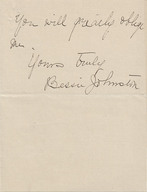 You will greatly oblige
me
Yours truly
Bessie Johnston